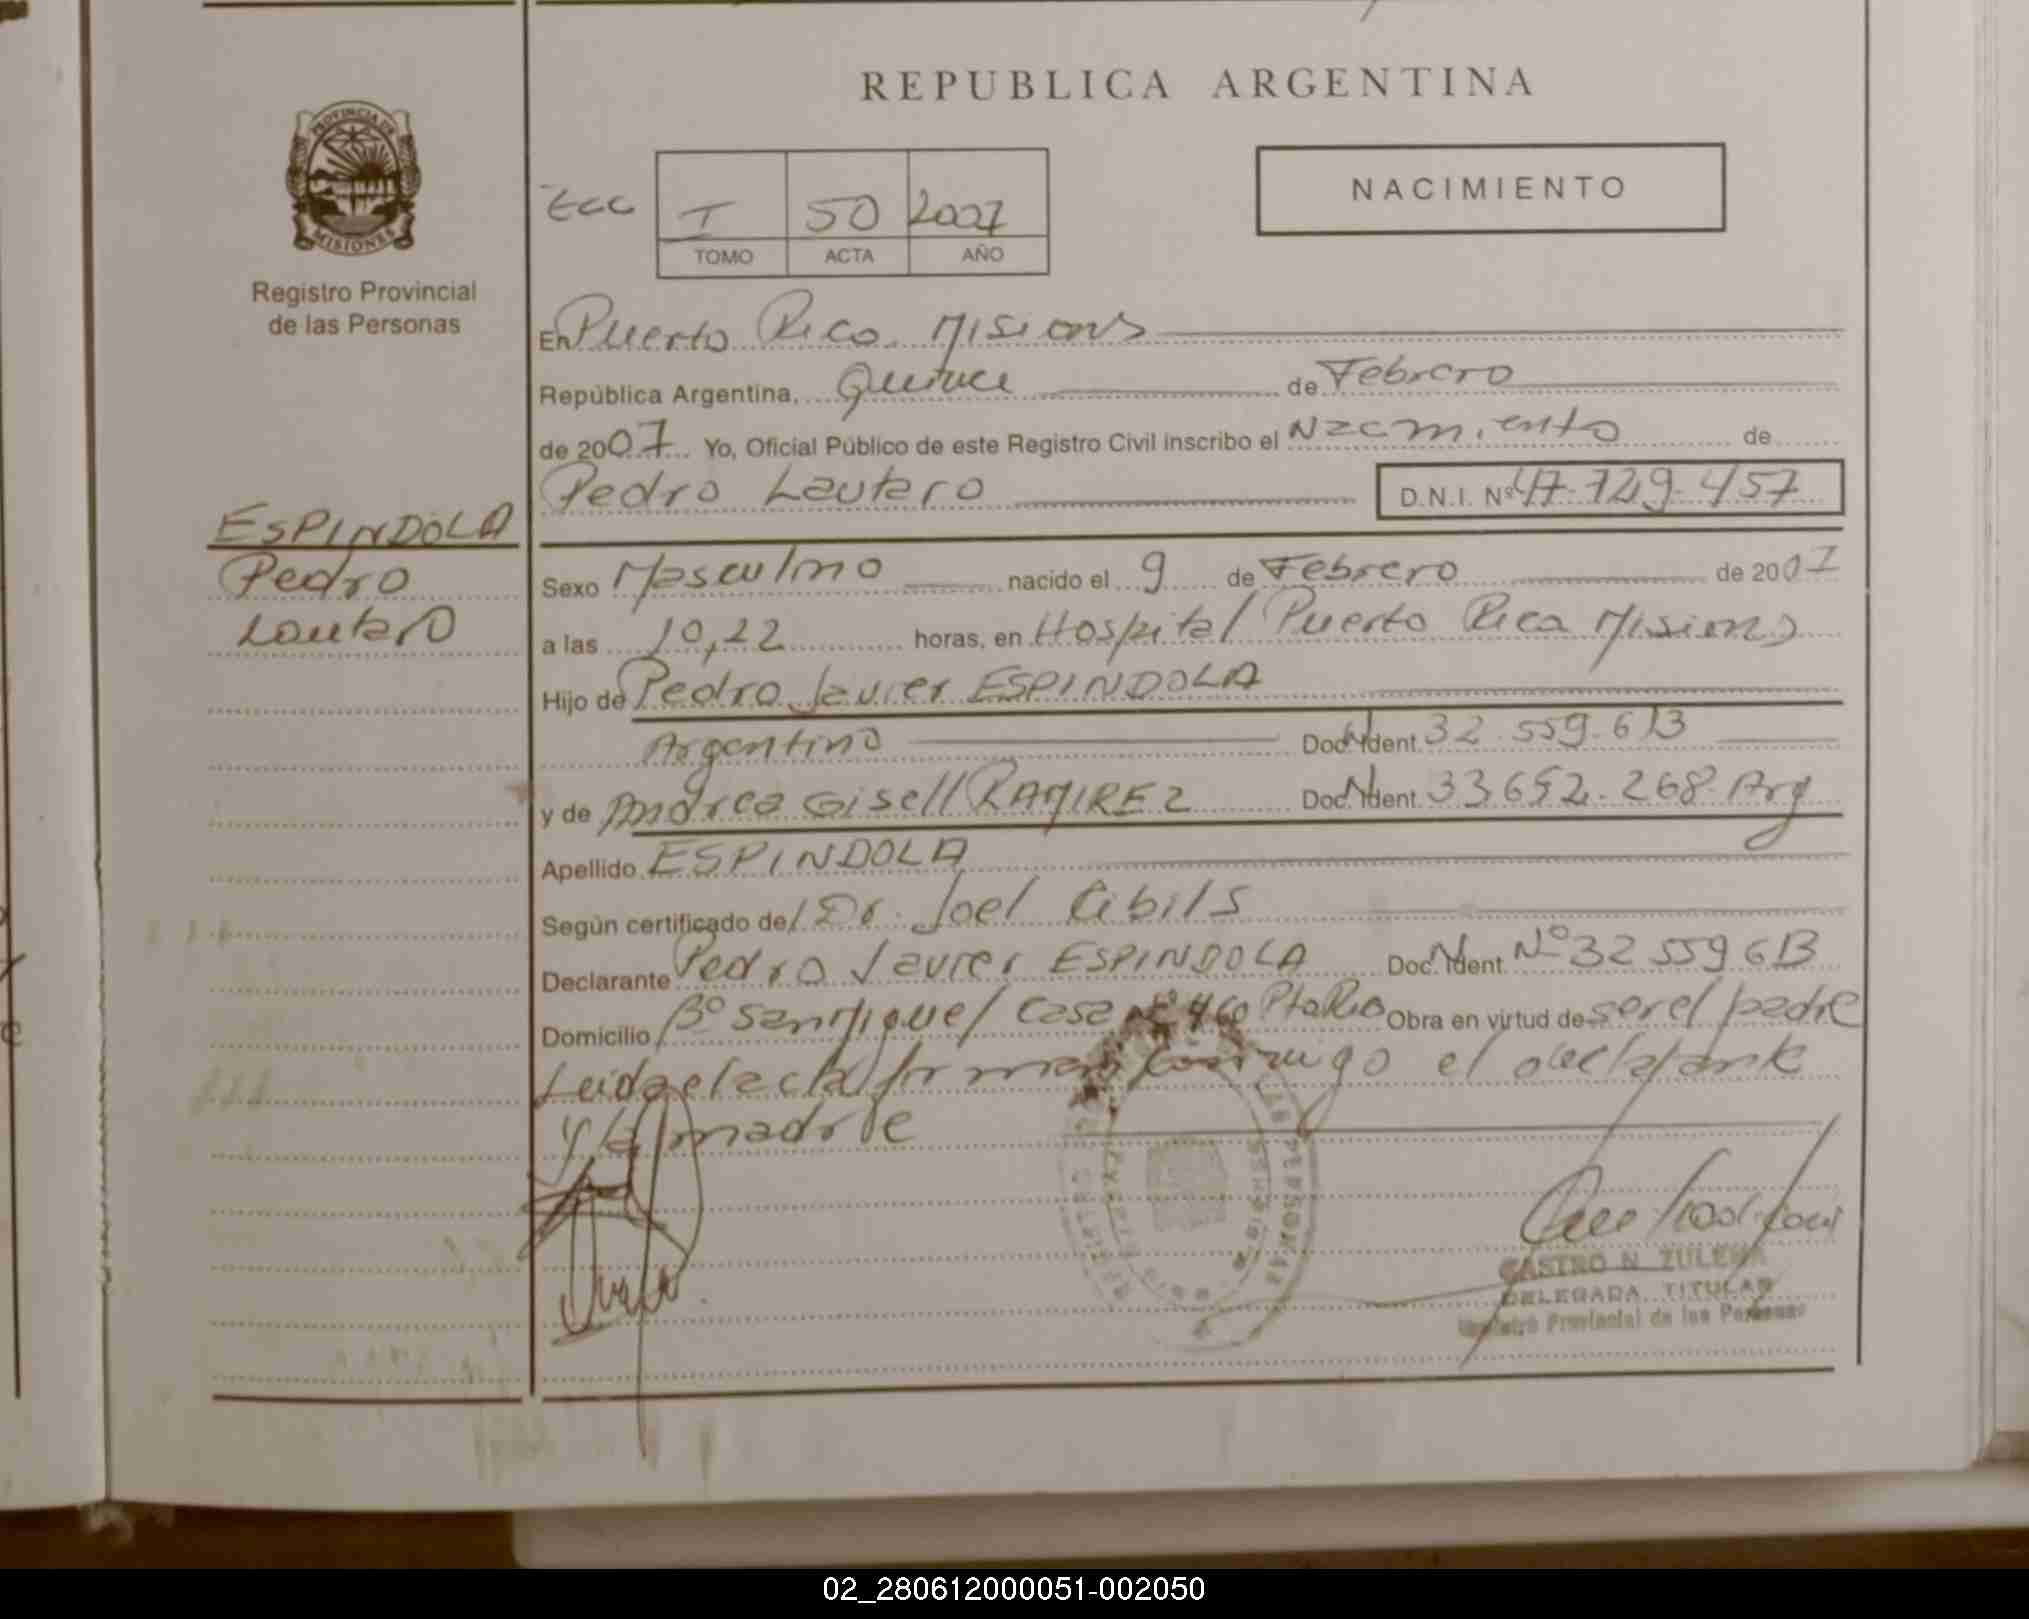 REPUBLICA ARGENTINA
PROVINCIA DE
MISIONES
Registro Provincial
de las Personas
I 50 2007
TOMO ACTA AÑO
NACIMIENTO
En Puerto Rico Misiones
República Argentina, Quince de Febrero
de 2007 Yo, Oficial Público de este Registro Civil inscribo el Nacimiento de
Pedro Lautaro D.N.I. Nº 47.729.457
ESPINDOLA
Pedro
Lautaro
Sexo Masculino nacido el 9 de Febrero de 2007
a las 10,22 horas, en Hospital Puerto Rico Misiones
Hijo de Pedro Javier ESPINDOLA
Argentino Doc. Ident. 32.559.613
y de Andrea Gisell RAMIREZ Doc. Ident. 33.652.268 Arg
Apellido ESPINDOLA
Según certificado del Dr. Joel Cibils
Declarante Pedro Javier ESPINDOLA Doc. Ident. Nº 32 559 613
Domicilio Bº San Miguel Casa Nº 460 Pto Rico Obra en virtud de ser el padre
Leida el acta firman conmigo el declarante
y la madre
CASTRO N. ZULEMA
DELEGADA TITULAR
Registro Provincial de las Personas
02_280612000051-002050